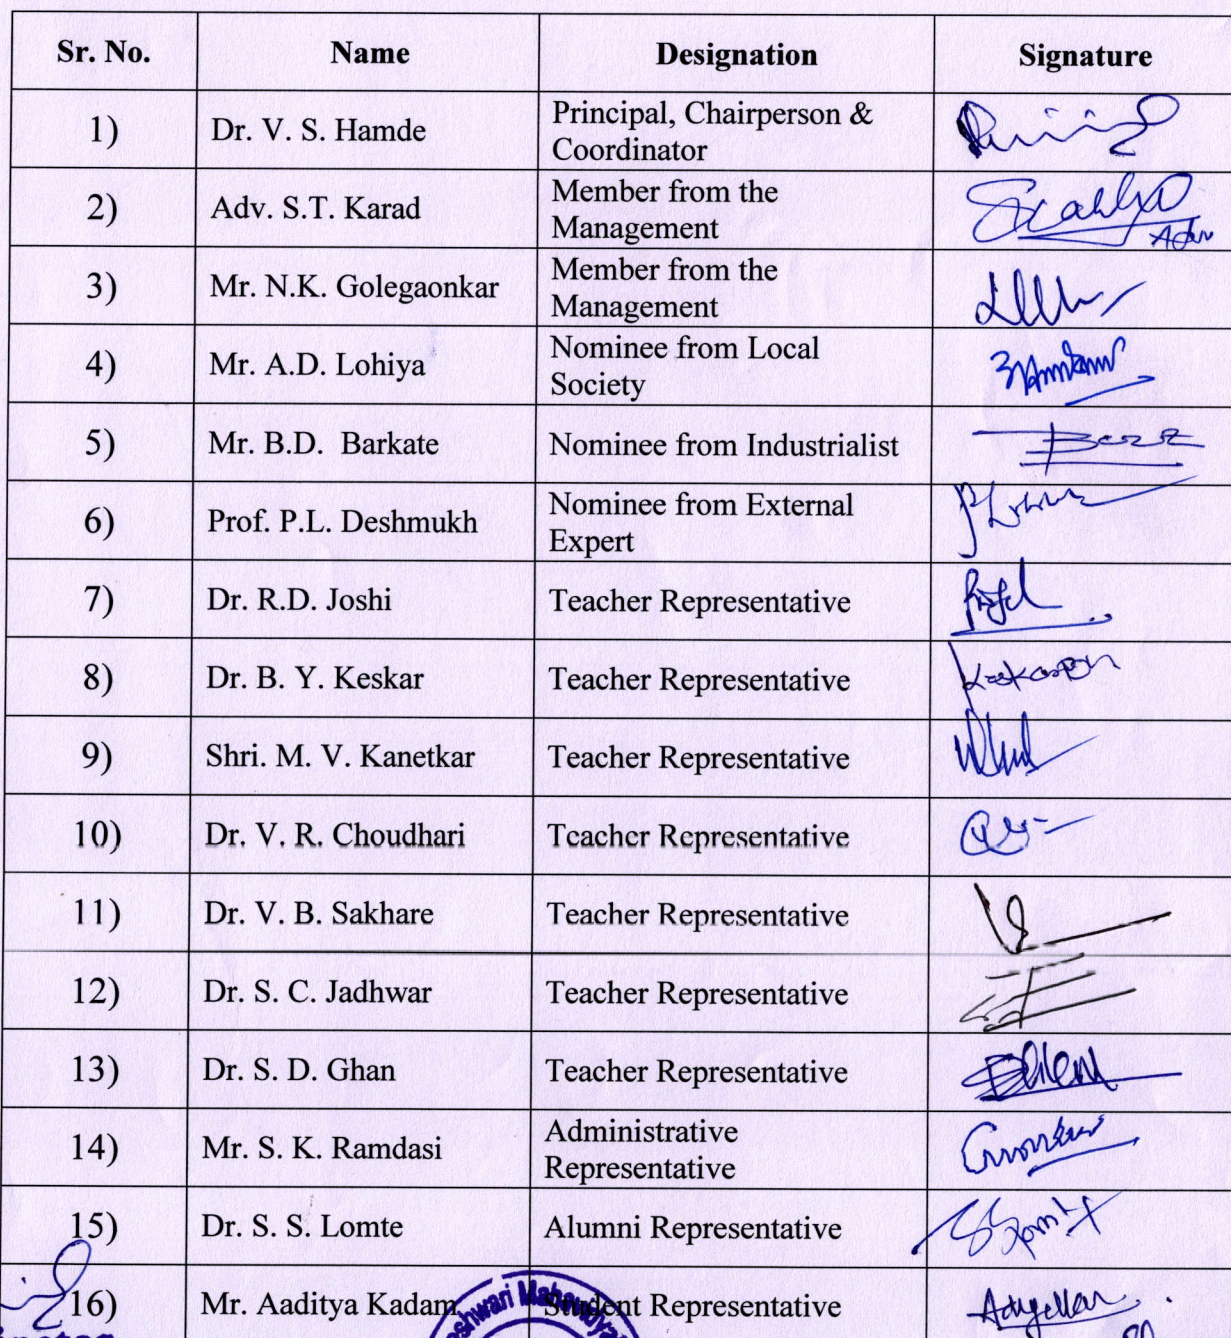 Sr. No. Name Designation Signature
1) Dr. V. S. Hamde Principal, Chairperson &
Coordinator
2) Adv. S.T. Karad Member from the
Management
Adv
3) Mr. N.K. Golegaonkar Member from the
Management
4) Mr. A.D. Lohiya Nominee from Local
Society
5) Mr. B.D. Barkate Nominee from Industrialist
6) Prof. P.L. Deshmukh Nominee from External
Expert
7) Dr. R.D. Joshi Teacher Representative
8) Dr. B. Y. Keskar Teacher Representative
9) Shri. M. V. Kanetkar Teacher Representative
10) Dr. V. R. Choudhari Teacher Representative
11) Dr. V. B. Sakhare Teacher Representative
12) Dr. S. C. Jadhwar Teacher Representative
13) Dr. S. D. Ghan Teacher Representative
14) Mr. S. K. Ramdasi Administrative
Representative
15) Dr. S. S. Lomte Alumni Representative
16) Mr. Aaditya Kadam Student Representative